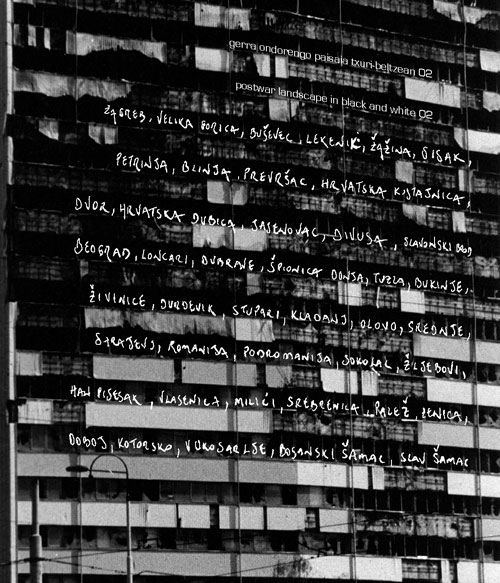 gerra ondorengo paisaia txuri-beltzean 02
postwar landscape in black and white 02
ZAGREB, VELIKA GORICA, BUŠEVEC, LEKENIK, ŽAŽINA, SISAK,
PETRINJA, BLINJA, PREVRŠAC, HRVATSKA KOSTAJNICA,
DVOR, HRVATSKA DUBICA, JASENOVAC, DIVUSA, SLAVONSKI BROD
BEOGRAD, LONCARI, DUBRAVE, ŠPIONICA DONJA, TUZLA, DUKINJE,
ŽIVINICE, DURDEVIK, STUPARI, KLADANJ, OLOVO, SREDNJE,
ROMANIJA, PODROMANIJA, SOKOLAC, ŽLJEBOVI,
HAN PIJESAK, VLASENICA, MILICI, SREBRENICA, PALEŽ, ZENICA,
DOBOJ, KOTORSKO, VUKOSAVLJE, BOSANSKI ŠAMAC, SLAV ŠAMAC